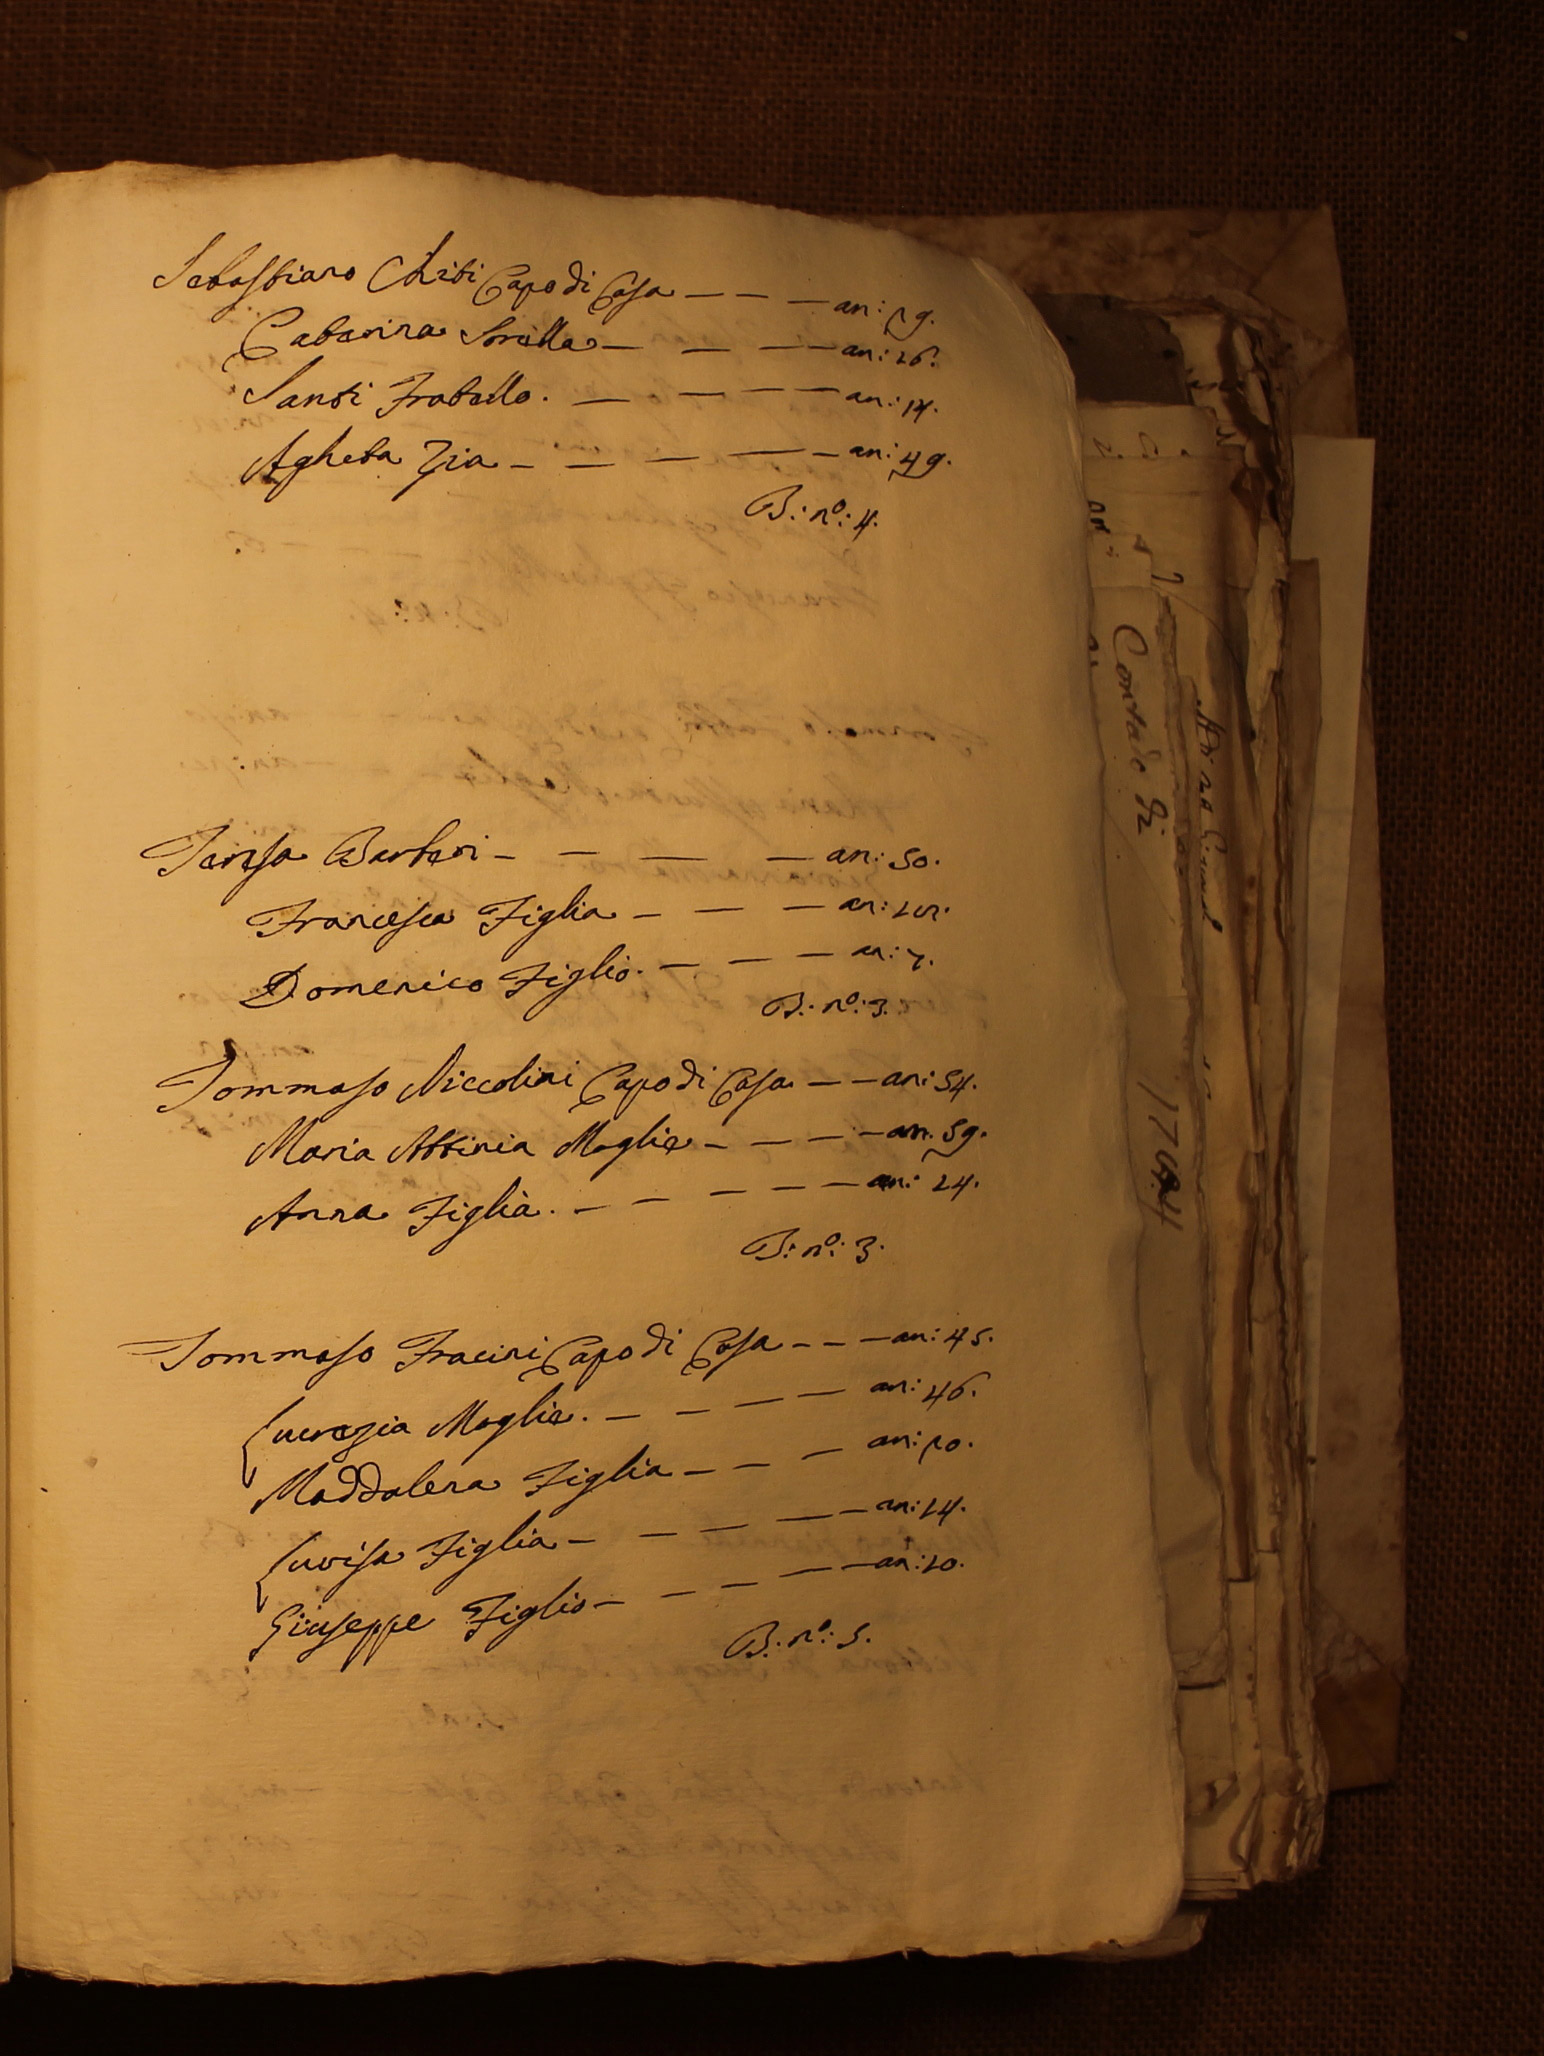 Sebastiano Chiti Capo di Casa — — — an: 29.
Catarina Sorella — — — an: 26.
Santi Fratello. — — — — an: 14.
Agheta Zia — — — — — an: 49.
B: nº: 4.
Teresa Barberi — — — — an: 50.
Francesca Figlia — — — an:
Domenico Figlio. — — — an: 7.
B: nº: 3.
Tommaso Niccolini Capo di Casa — — an: 54.
Maria Moglie — — — — an: 59.
Anna Figlia. — — — — — an: 24.
B: nº: 3.
Tommaso Fracini Capo di Casa — — — an: 45.
Lucrezia Moglie. — — — — an: 46.
Maddalena Figlia — — — an: 20.
Luvisa Figlia — — — — — an: 14.
Giuseppe Figlio — — — — — an: 10.
B: nº: 5.
Contado Di